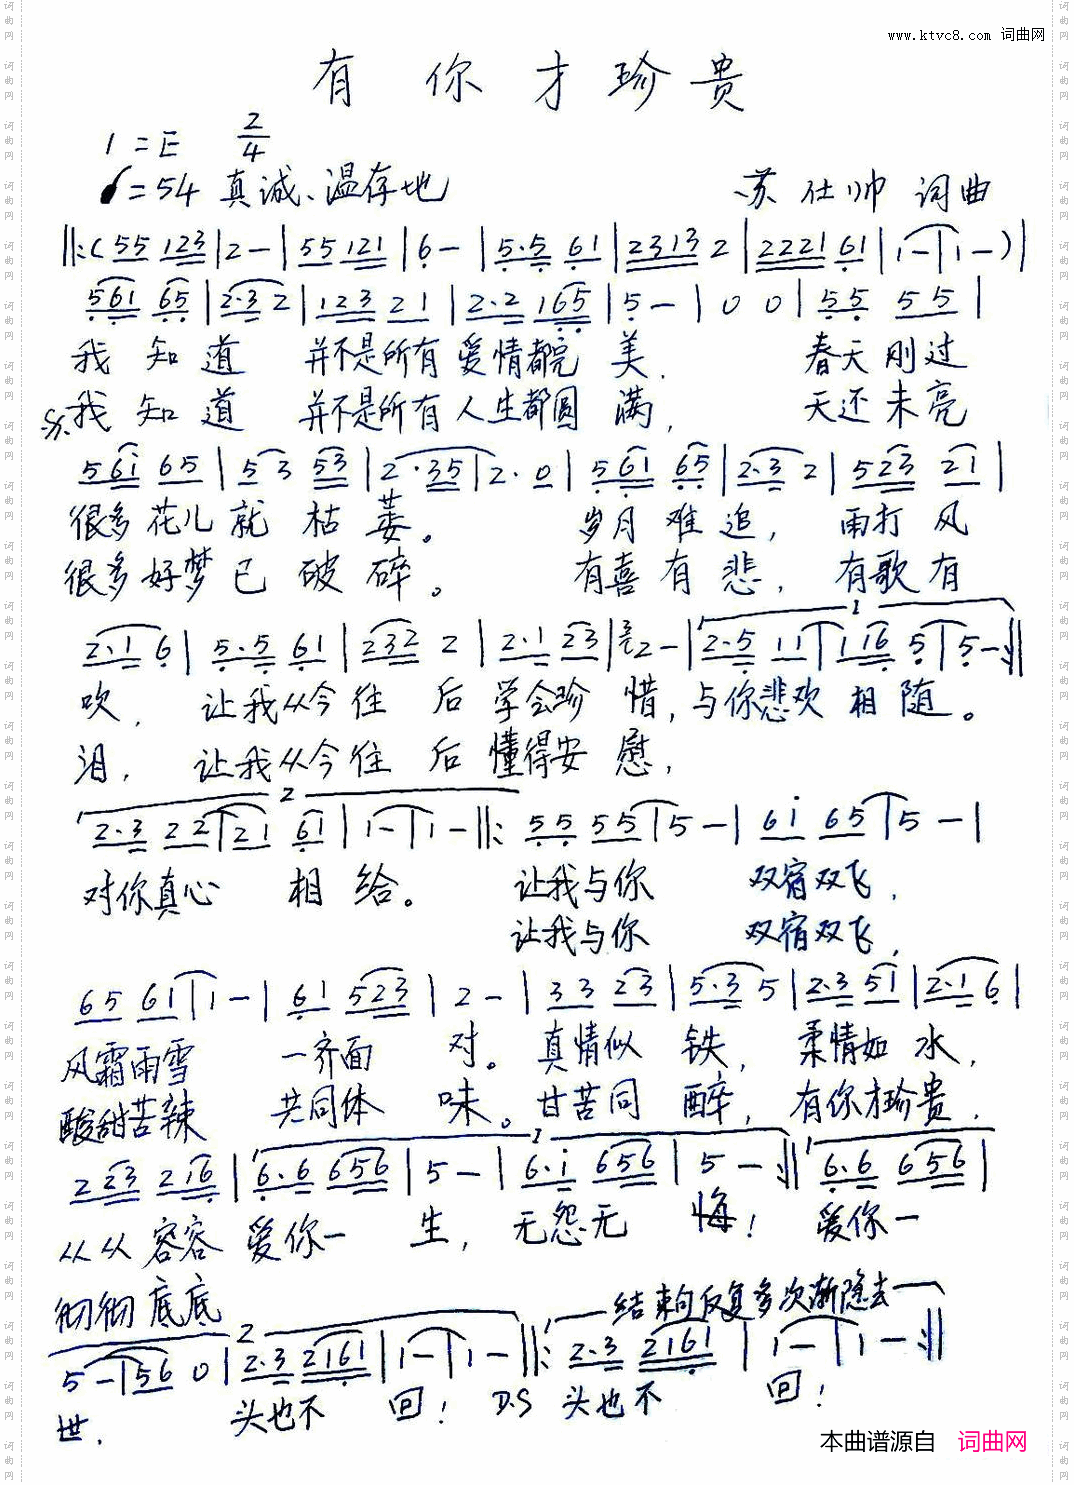 www.ktvc8.com 词曲网
有你才珍贵
1=E 2/4
=54 真诚、温存地 苏仕帅 词曲
‖:(55 123|2-|55 121|6-|5·5 61|2313 2|2221 61|1-|1-)|
561 65|2·3 2|123 21|2·2 165|5-|0 0|55 55|
我知道 并不是所有爱情都完美. 春天刚过
我知道 并不是所有人生都圆满, 天还未亮
561 65|53 53|2·35|2·0|561 65|2·3 2|523 21|
很多花儿就枯萎。 岁月难追, 雨打风
很多好梦已破碎。 有喜有悲, 有歌有
2·1 6|5·5 61|232 2|2·1 23|2-|2·5 11|116 5|5-:‖
吹, 让我从今往后学会珍惜,与你悲欢相随。
泪, 让我从今往后懂得安慰,
2
2·3 22|21 61|1-|1-‖: 55 55|5-|61 65|5-|
对你真心相给。 让我与你 双宿双飞,
让我与你 双宿双飞,
65 61|1-|61 523|2-|33 23|5·3 5|2·3 51|2·1 6|
风霜雨雪 一齐面对。真情似铁, 柔情如水,
酸甜苦辣 共同体味。甘苦同醉, 有你才珍贵,
1
223 216|6·6 656|5-|6·1 656|5-:‖6·6 656|
从从容容 爱你一生, 无怨无悔! 爱你一
彻彻底底
2 结束句反复多次渐隐去
5-|56 0|2·3 2161|1-|1-‖:2·3 2161|1-|1-:‖
世. 头也不回! D.S 头也不回!
本曲谱源自 词曲网